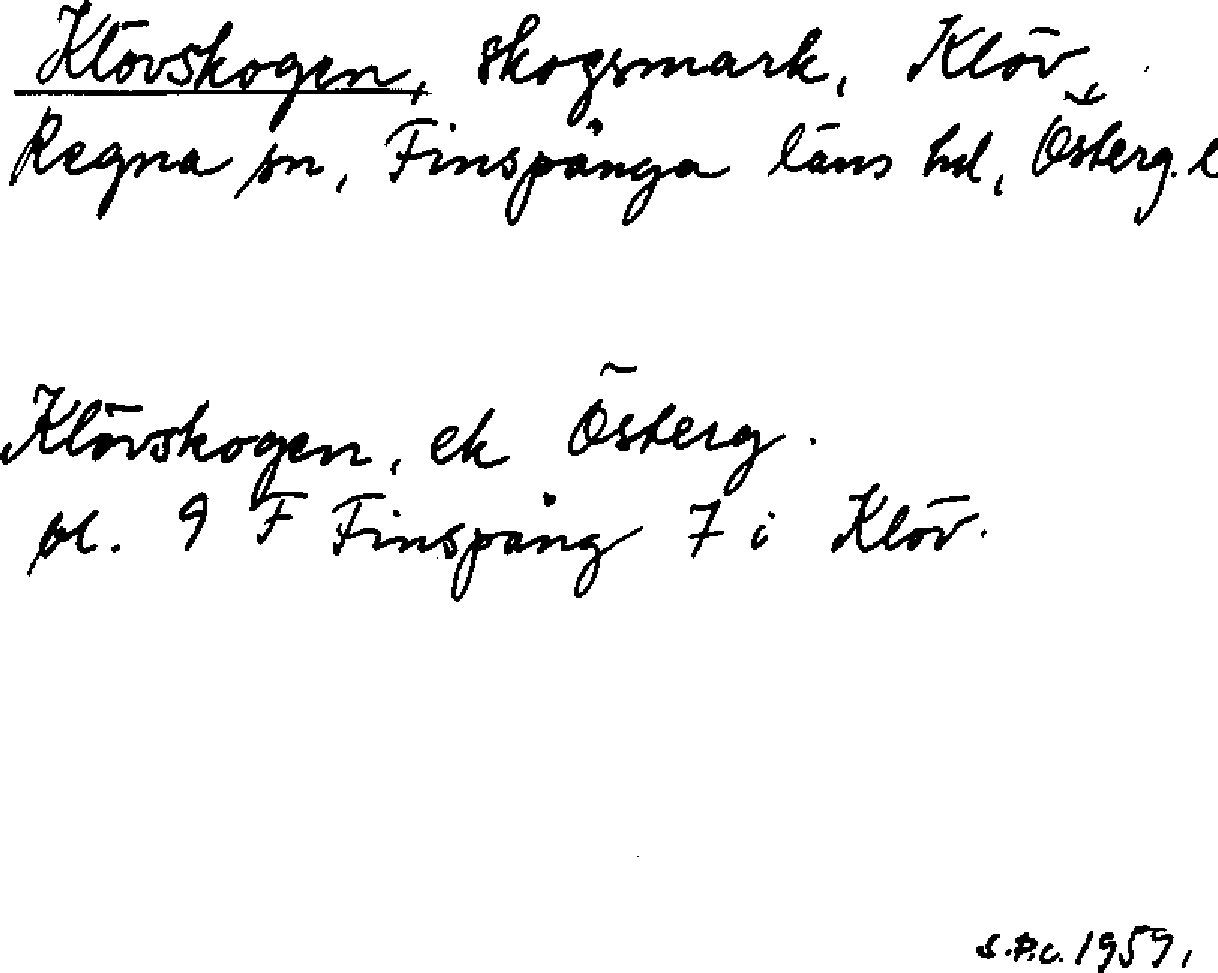 Klövskogen, skogsmark, Klöv,
Regna sn, Finspånga läns hd, Österg. l
Klövskogen, ek Österg.
bl. 9 F Finspång 7 i Klöv.
S.P.C. 1959,